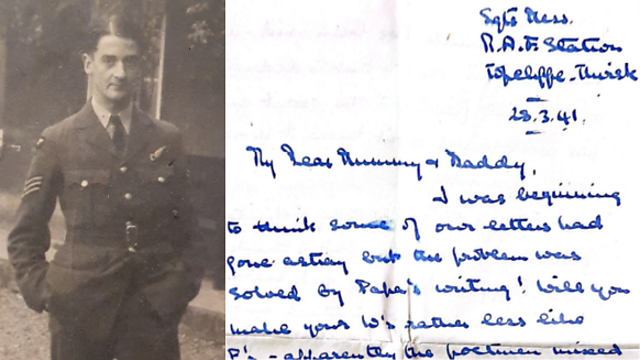 Sgts Mess.
R.A.F. Station
Topcliffe - Thirsk
28.3.41.
My Dear Mummy & Daddy,
I was beginning
to think some of our letters had
gone astray but the problem was
solved by Papa's writing! Will you
make your W's rather less like
P's - apparently the postmen mixed